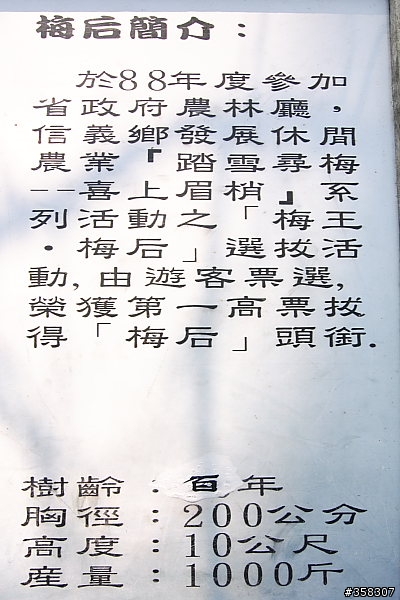 梅后簡介：
於88年度參加
省政府農林廳，
信義鄉發展休閒
農業『踏雪尋梅
--喜上眉梢』系
列活動之「梅王
・梅后」選拔活
動,由遊客票選,
榮獲第一高票拔
得「梅后」頭銜.
樹齡：百年
胸徑：200公分
高度：10公尺
產量：1000斤
#358307